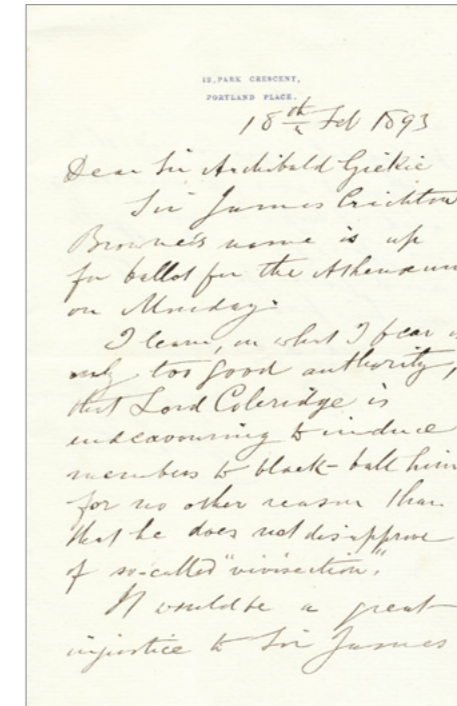 12, PARK CRESCENT,
PORTLAND PLACE.
18th Feb 1893
Dear Sir Archibald Giekie
Sir James Crichton
Browne's name is up
for ballot for the Athenæum
on Monday.
I learn, on what I fear is
only too good authority,
that Lord Coleridge is
endeavouring to induce
members to black-ball him
for no other reason than
that he does not disapprove
of so-called "vivisection".
It would be a great
injustice to Sir James